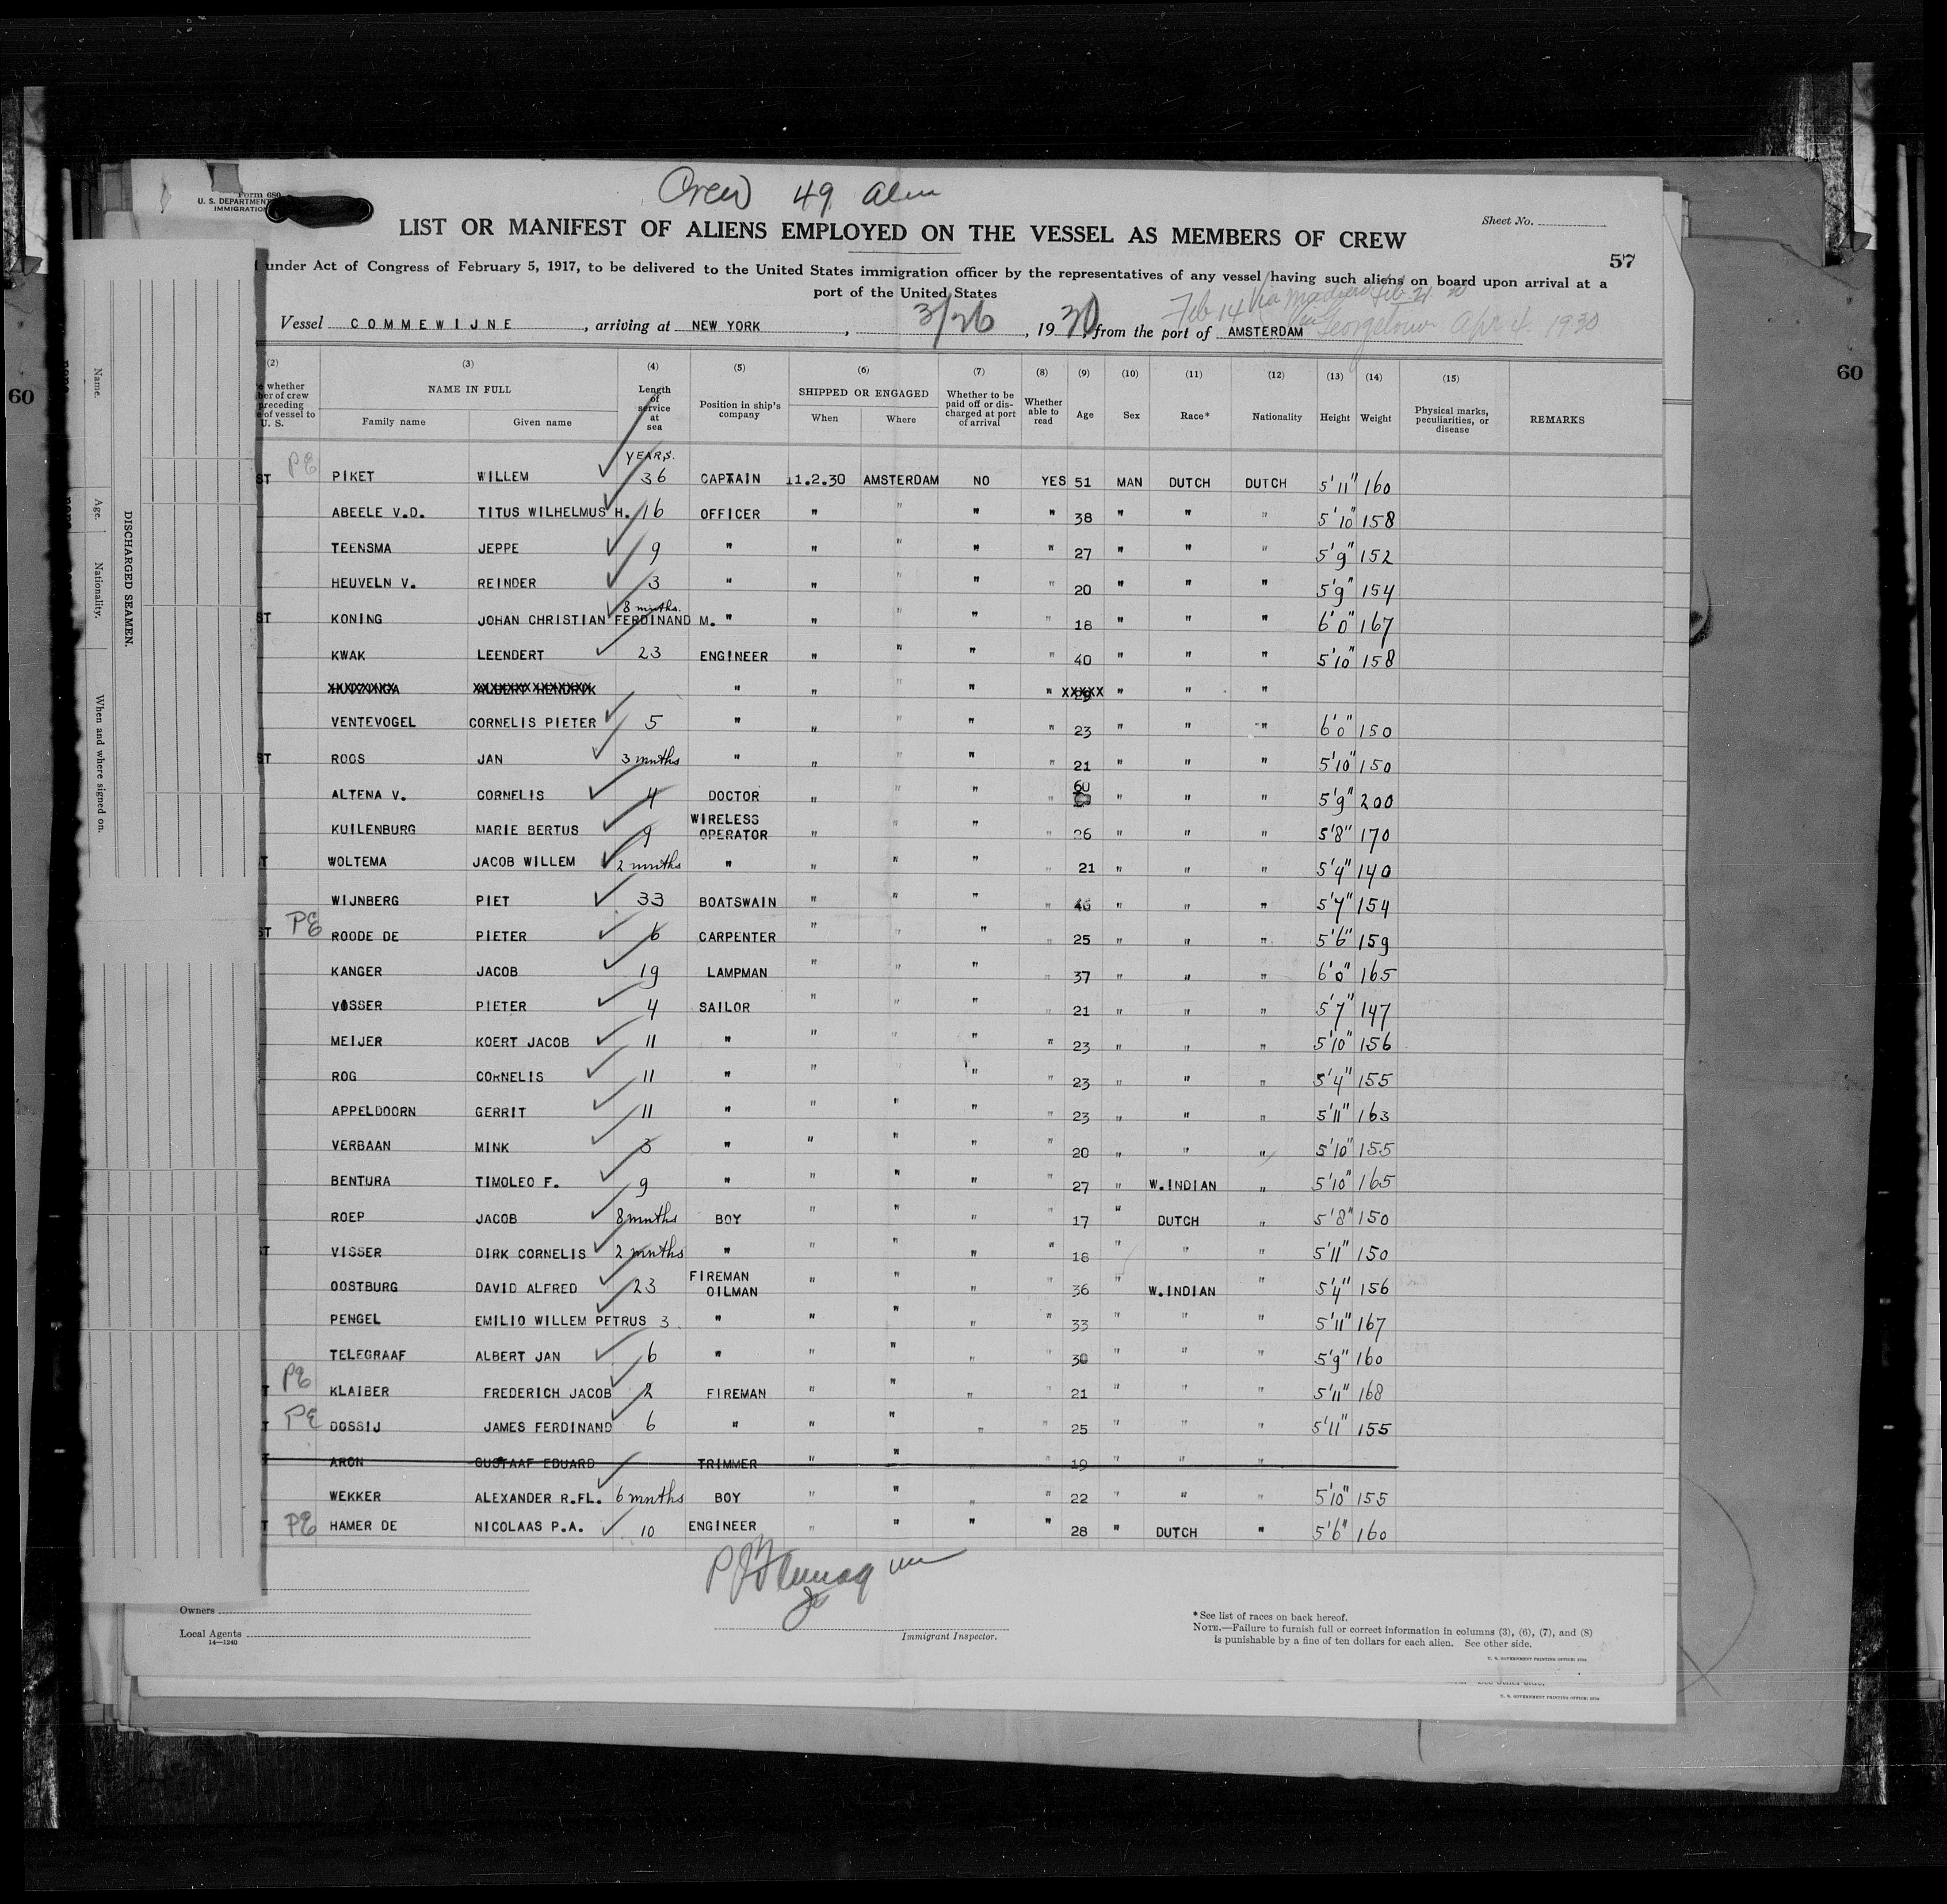 Crew 49 alien
Form 680
U. S. DEPARTMENT
IMMIGRATION
LIST OR MANIFEST OF ALIENS EMPLOYED ON THE VESSEL AS MEMBERS OF CREW
Sheet No.
57
under Act of Congress of February 5, 1917, to be delivered to the United States immigration officer by the representatives of any vessel having such aliens on board upon arrival at a
port of the United States
Feb 14 via Madeira Feb. 21. 30
Vessel COMMEWIJNE, arriving at NEW YORK, 3/26, 1930, from the port of AMSTERDAM
Georgetown Apr 4. 1930
60
60
DISCHARGED SEAMEN.
Name.
Age.
Nationality.
When and where signed on.
(2) (3) (4) (5) (6) (7) (8) (9) (10) (11) (12) (13) (14) (15)
whether
ber of crew
preceding
of vessel to
U. S.
NAME IN FULL
Family name Given name
Length of service at sea
Position in ship's company
SHIPPED OR ENGAGED
When Where
Whether to be paid off or discharged at port of arrival
Whether able to read
Age Sex Race* Nationality Height Weight
Physical marks, peculiarities, or disease
REMARKS
YEARS.
ST PE PIKET WILLEM 36 CAPTAIN 11.2.30 AMSTERDAM NO YES 51 MAN DUTCH DUTCH 5'11" 160
ABEELE V.D. TITUS WILHELMUS H. 16 OFFICER " " " " 38 " " " 5'10" 158
TEENSMA JEPPE 9 " " " " " 27 " " " 5'9" 152
HEUVELN V. REINDER 3 " " " " " 20 " " " 5'9" 154
ST KONING JOHAN CHRISTIAN FERDINAND M. 8 mnths. " " " " 18 " " " 6'0" 167
KWAK LEENDERT 23 ENGINEER " " " " 40 " " " 5'10" 158
" " " " XXXXX " " "
VENTEVOGEL CORNELIS PIETER 5 " " " " " 23 " " " 6'0" 150
ST ROOS JAN 3 mnths " " " " " 21 " " " 5'10" 150
ALTENA V. CORNELIS 4 DOCTOR " " " " 60 " " " 5'9" 200
KUILENBURG MARIE BERTUS 9 WIRELESS OPERATOR " " " " 26 " " " 5'8" 170
T WOLTEMA JACOB WILLEM 2 mnths " " " " " 21 " " " 5'4" 140
WIJNBERG PIET 33 BOATSWAIN " " " " 46 " " " 5'7" 154
ST PE ROODE DE PIETER 6 CARPENTER " " " " 25 " " " 5'6" 159
KANGER JACOB 19 LAMPMAN " " " " 37 " " " 6'0" 165
VISSER PIETER 4 SAILOR " " " " 21 " " " 5'7" 147
MEIJER KOERT JACOB 11 " " " " " 23 " " " 5'10" 156
ROG CORNELIS 11 " " " " " 23 " " " 5'4" 155
APPELDOORN GERRIT 11 " " " " " 23 " " " 5'11" 163
VERBAAN MINK 3 " " " " " 20 " " " 5'10" 155
BENTURA TIMOLEO F. 9 " " " " " 27 " W.INDIAN " 5'10" 165
ROEP JACOB 8 mnths BOY " " " " 17 " DUTCH " 5'8" 150
T VISSER DIRK CORNELIS 2 mnths " " " " " 18 " " " 5'11" 150
OOSTBURG DAVID ALFRED 23 FIREMAN OILMAN " " " " 36 " W.INDIAN " 5'4" 156
PENGEL EMILIO WILLEM PETRUS 3 " " " " " 33 " " " 5'11" 167
TELEGRAAF ALBERT JAN 6 " " " " " 30 " " " 5'9" 160
T PE KLAIBER FREDERICH JACOB 2 FIREMAN " " " " 21 " " " 5'11" 168
T PE DOSSIJ JAMES FERDINAND 6 " " " " " 25 " " " 5'11" 155
T ARON GUSTAAF EDUARD TRIMMER " " " " 19 " " "
WEKKER ALEXANDER R.FL. 6 mnths BOY " " " " 22 " " " 5'10" 155
T PE HAMER DE NICOLAAS P.A. 10 ENGINEER " " " " 28 " DUTCH " 5'6" 160
Owners
Local Agents
14—1240
Immigrant Inspector.
*See list of races on back hereof.
NOTE.—Failure to furnish full or correct information in columns (3), (6), (7), and (8)
is punishable by a fine of ten dollars for each alien. See other side.
U. S. GOVERNMENT PRINTING OFFICE:
U. S. GOVERNMENT PRINTING OFFICE: